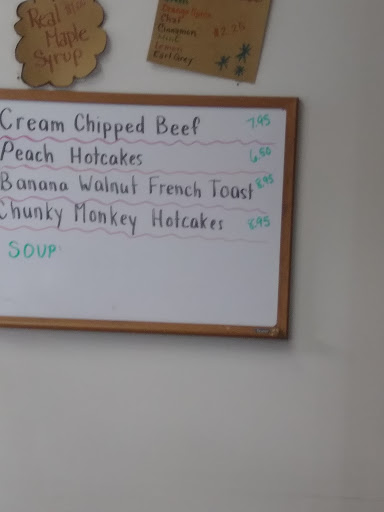 Real
Maple
Syrup
Orange
Chai
Cinnamon $2.25
Mint
Lemon
Earl Grey
Cream Chipped Beef 7.95
Peach Hotcakes 6.50
Banana Walnut French Toast 8.95
Chunky Monkey Hotcakes 8.95
SOUP